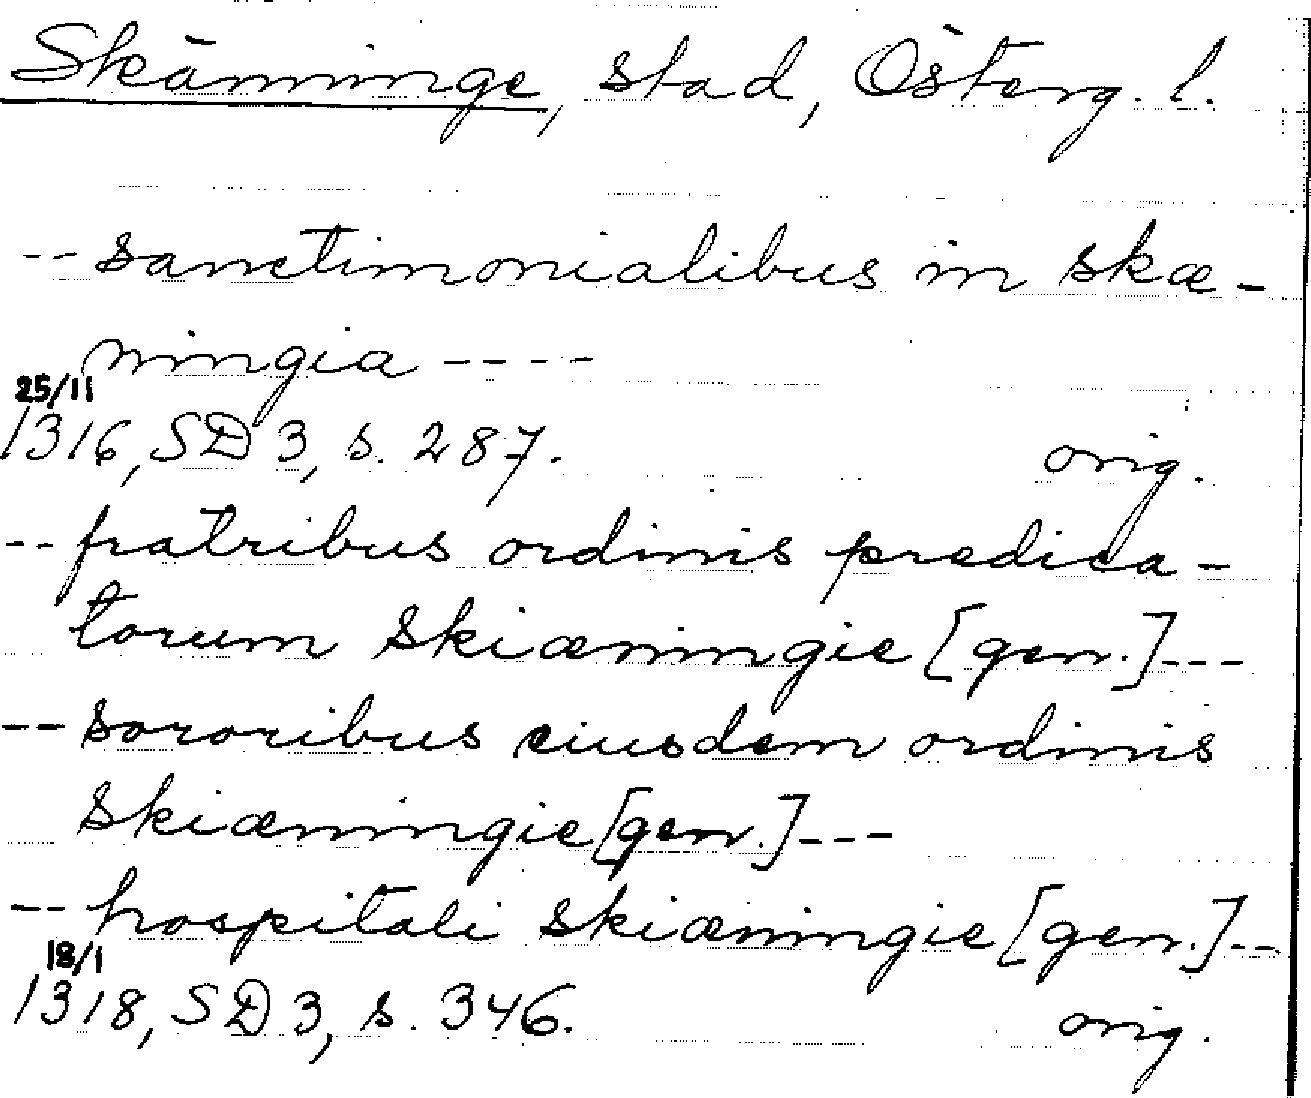 Skänninge, stad, Österg. l.
-- sanctimonialibus in skæ-
ningia ----
25/11
1316, SD 3, s. 287. orig.
-- fratribus ordinis predica-
torum skiæningie [gen.] ---
-- sororibus eiusdem ordinis
skiæningie [gen.] ---
-- hospitali skiæningie [gen.] --
18/1
1318, SD 3, s. 346. orig.